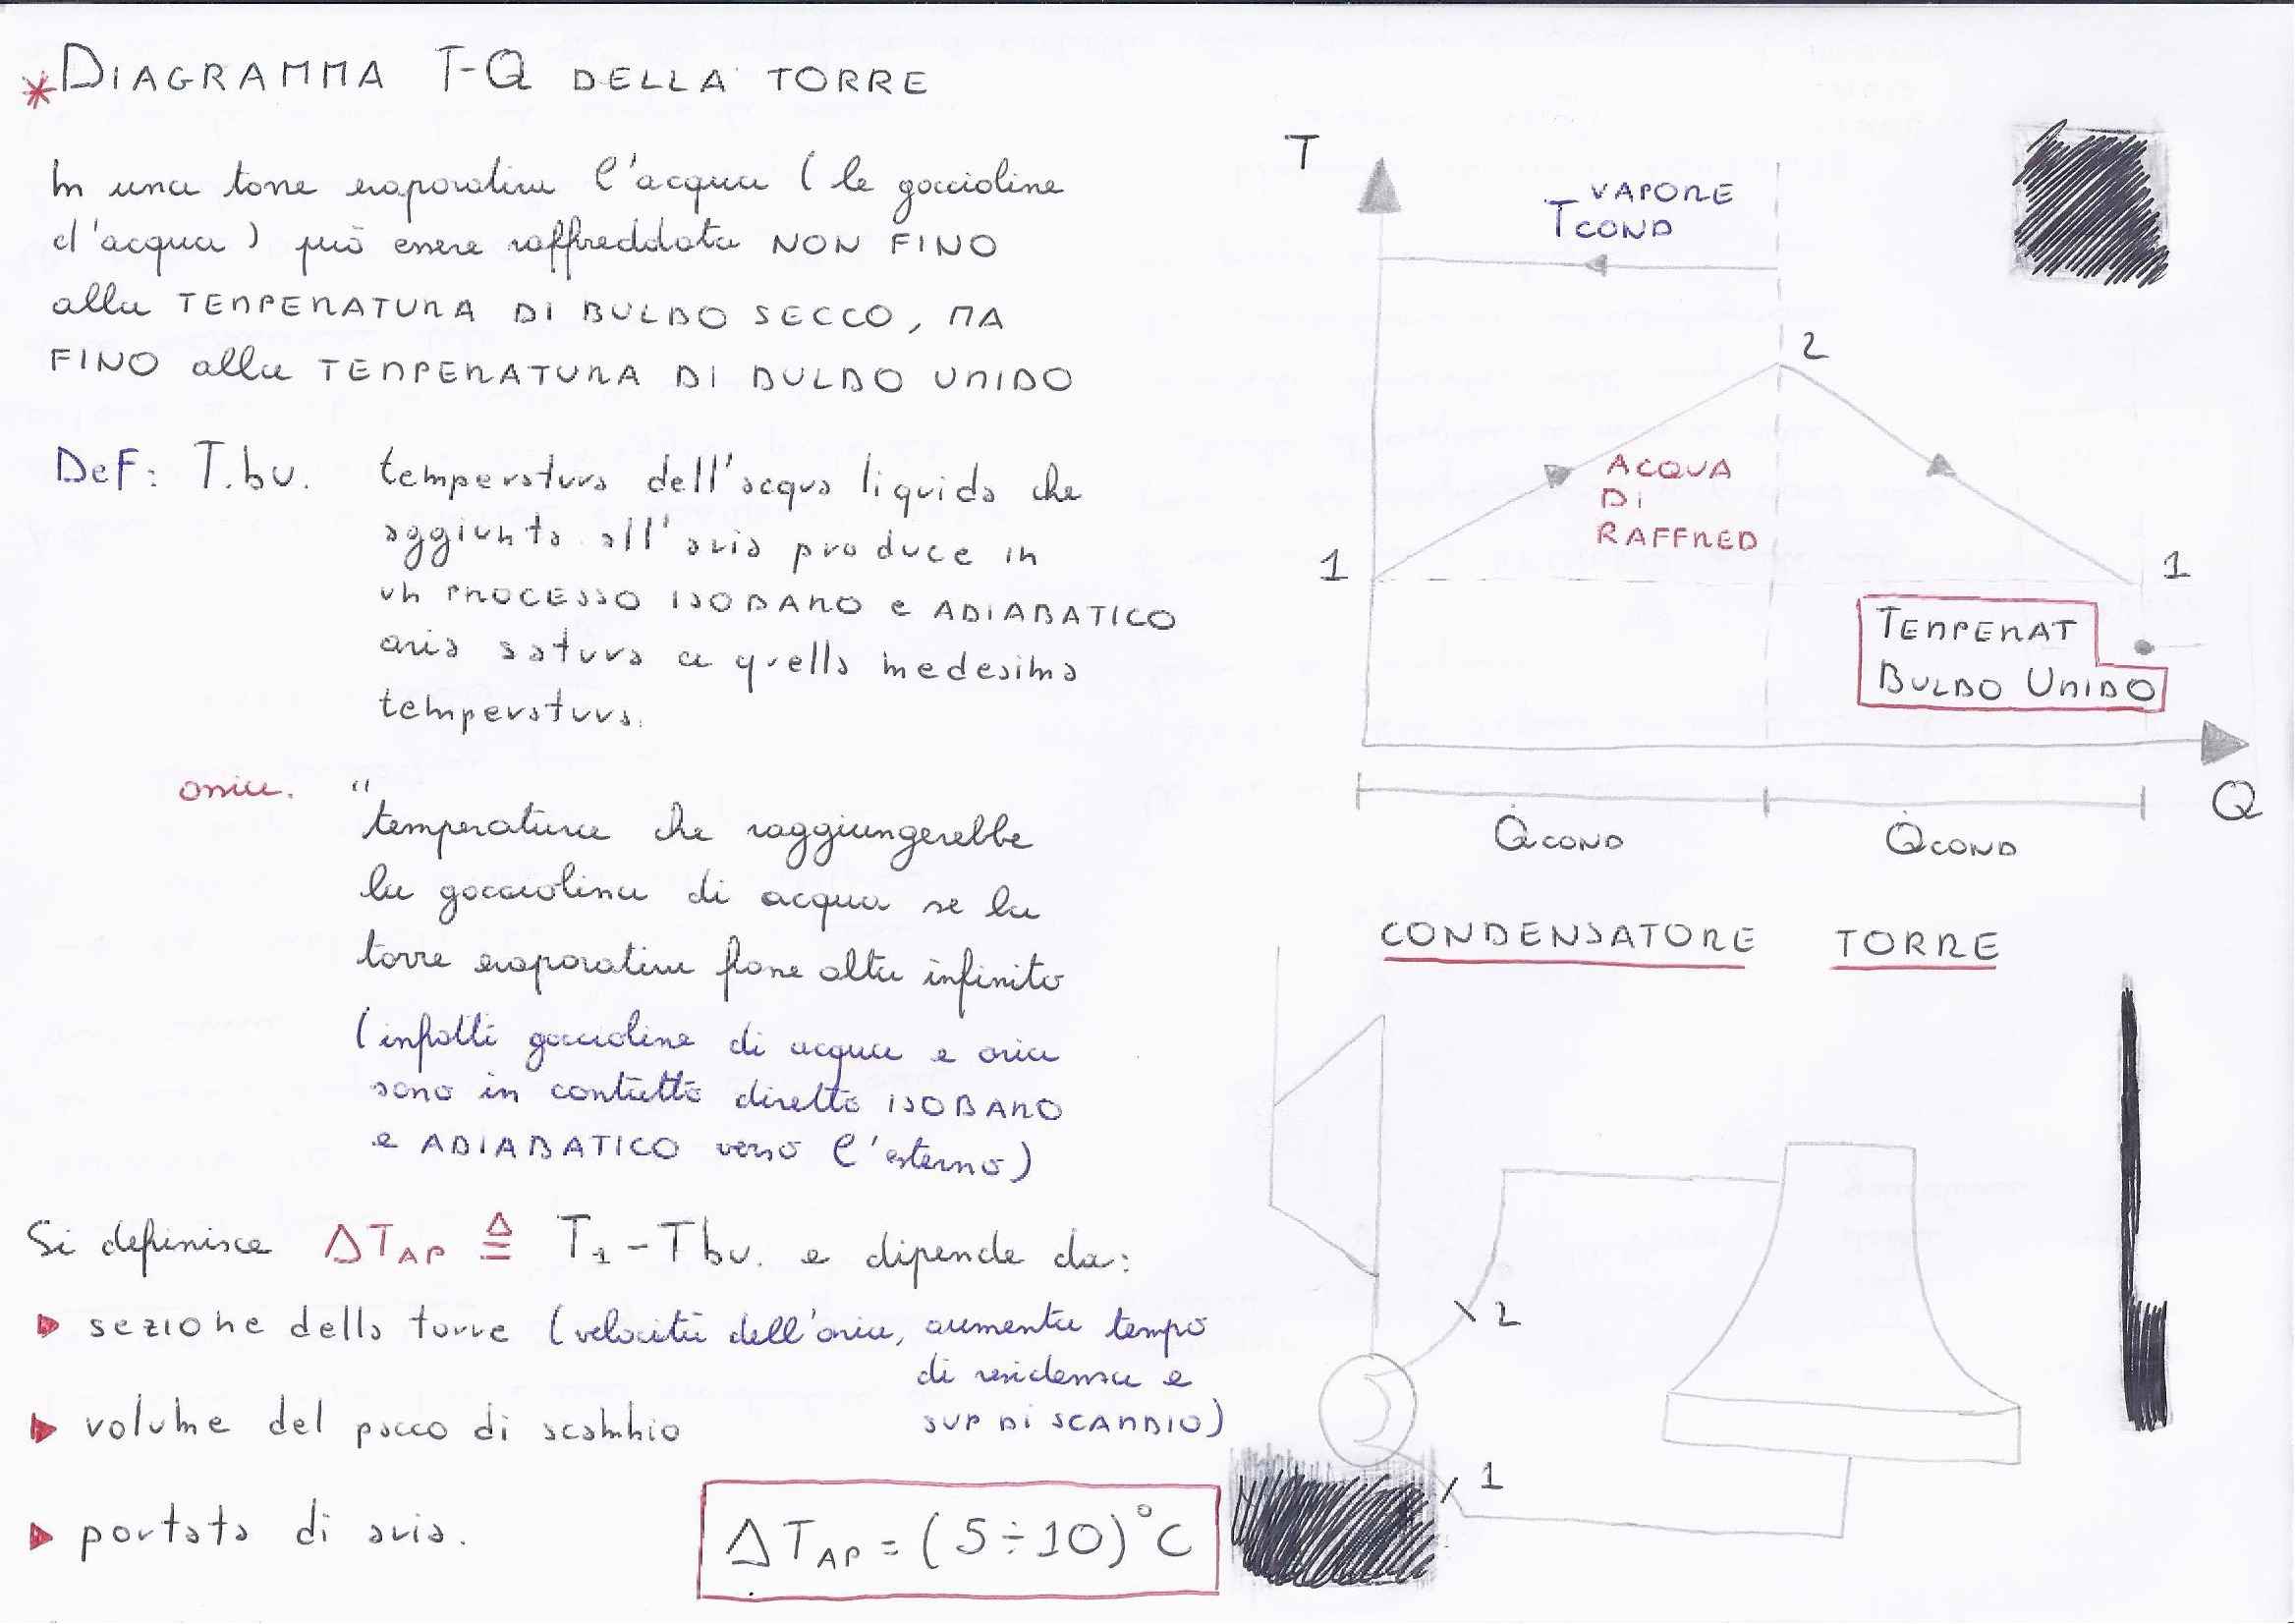 * DIAGRAMMA T-Q DELLA TORRE
In una torre evaporativa l'acqua (le goccioline
d'acqua) può essere raffreddata NON FINO
alla TEMPERATURA DI BULBO SECCO, MA
FINO alla TEMPERATURA DI BULBO UMIDO
DEF: T.bu. temperatura dell'acqua liquida che
aggiunta all'aria produce in
un PROCESSO ISOBARO e ADIABATICO
aria satura a quella medesima
temperatura.
ossia. "temperatura che raggiungerebbe
la gocciolina di acqua se la
torre evaporativa fosse alta infinito
(infatti goccioline di acqua e aria
sono in contatto diretto ISOBARO
e ADIABATICO verso l'esterno)
Si definisce ΔTAP ≜ T1 - Tbu. e dipende da:
▶ sezione della torre (velocità dell'aria, aumenta tempo
di residenza e
SUP DI SCAMBIO)
▶ volume del pacco di scambio
▶ portata di aria.
ΔTAP = (5÷10)°C
T
VAPORE
TCOND
2
ACQUA
DI
RAFFRED
1
1
TEMPERAT
BULBO UMIDO
Q
Q̇COND
Q̇COND
CONDENSATORE TORRE
2
1